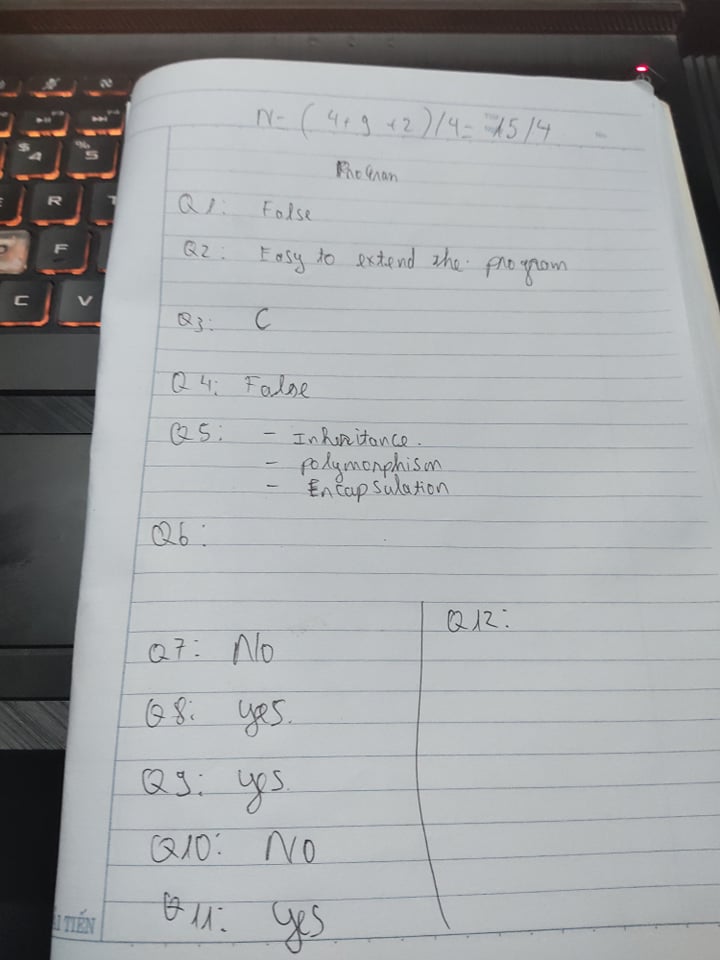 N = ( 4 + 9 + 2 ) / 4 = 15 / 4
Program
Q1: False
Q2: Easy to extend the program
Q3: C
Q4: False
Q5: - Inheritance.
- polymorphism
- Encapsulation
Q6:
Q7: No
Q8: yes.
Q9: yes.
Q10: No
Q11: yes
Q12:
TIẾN
$
4
%
5
R
F
C
V